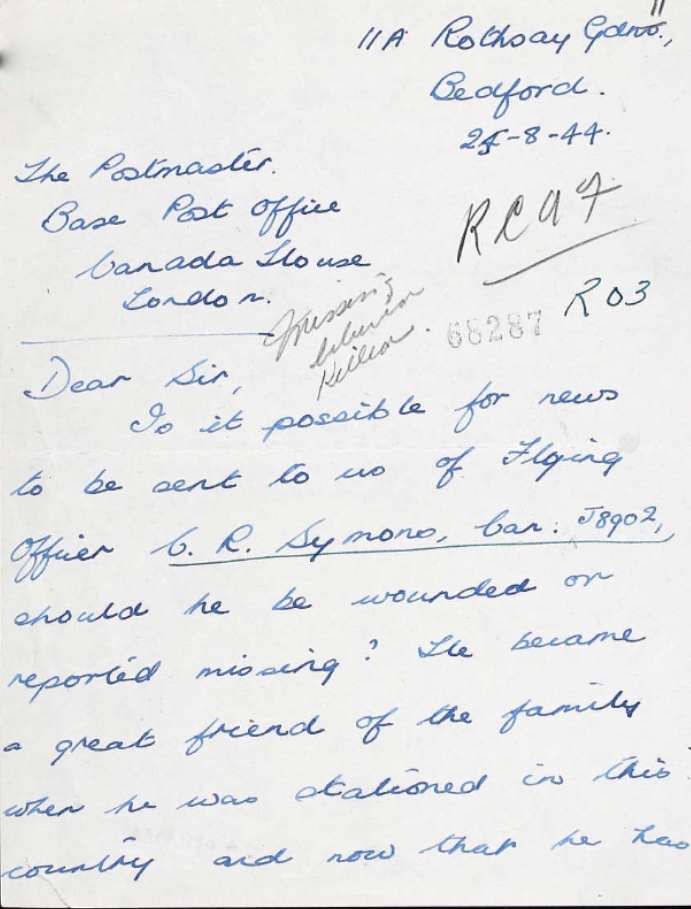 11A Rothsay Gdns.,
Bedford.
25-8-44.
The Postmaster.
Base Post Office
Canada House
London.
RCAF
R03
Missing
believed
killed.
68287
Dear Sir,
Is it possible for news
to be sent to us of Flying
Officer C. R. Symons, Can. J8902,
should he be wounded or
reported missing? He became
a great friend of the family
when he was stationed in this
country and now that he has